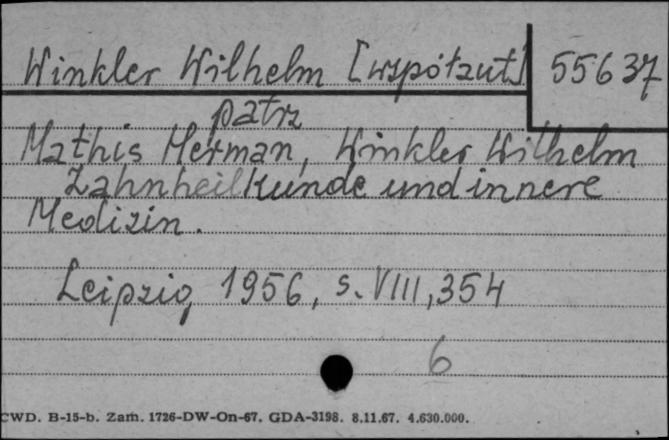 Winkler Wilhelm [współaut] 55637
patrz
Mathis Herman, Winkler Wilhelm
Zahnheilkunde und innere
Medizin.
Leipzig 1956, s. VIII, 354
6
CWD. B-15-b. Zam. 1726-DW-On-67. GDA-3198. 8.11.67. 4.630.000.